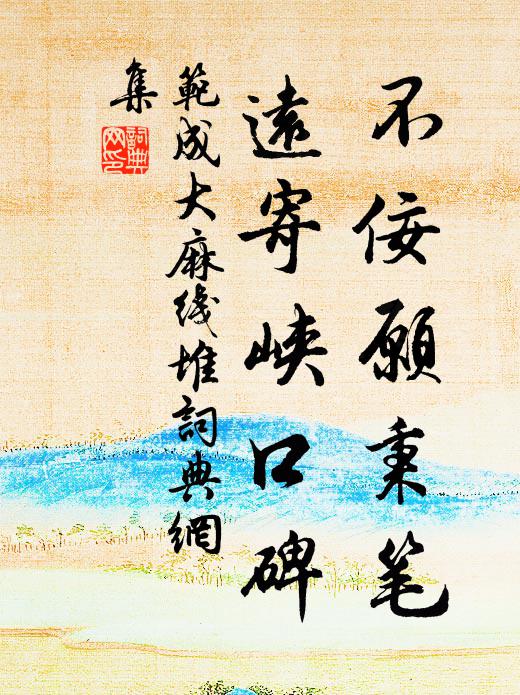 不佞願秉笔
遠寄峽口碑
範成大麻线堆詞典網
集
詞典网印